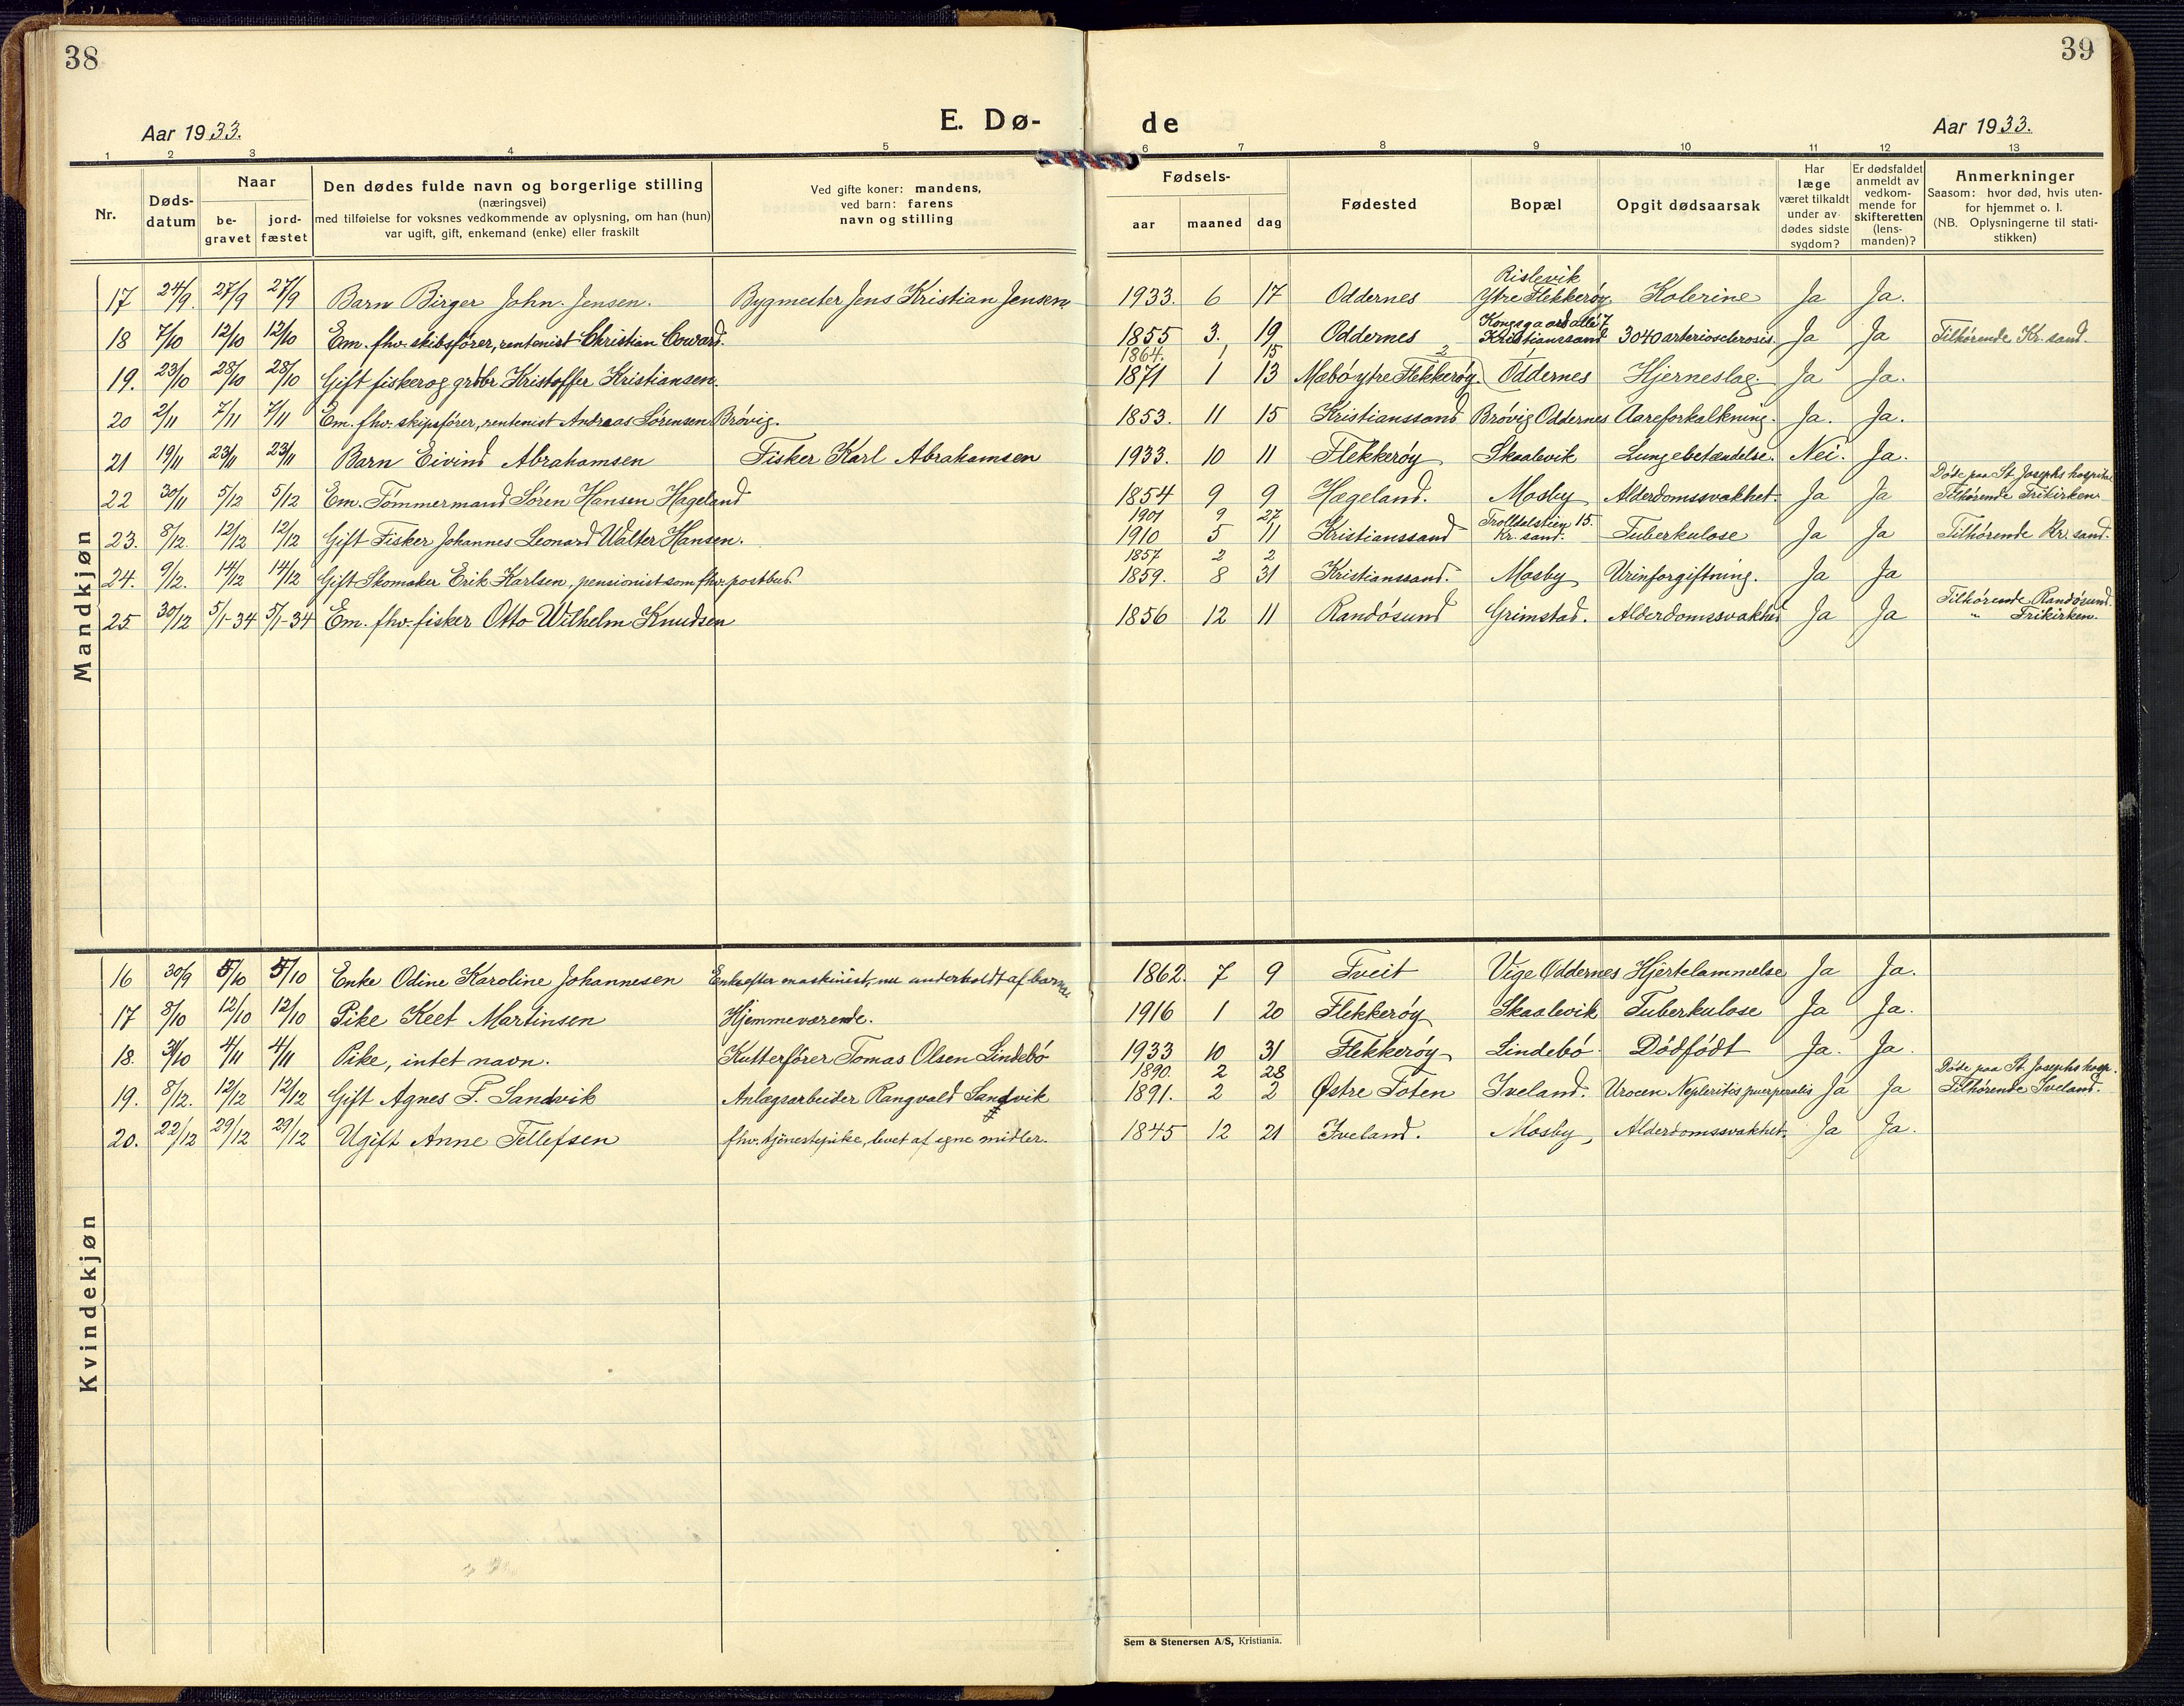 38
39
Aar 1933.
E. Dø-
de
Aar 1933.
1 2 3 4 5 6 7 8 9 10 11 12 13
Nr.
Døds-
datum
Naar
be-
gravet
jord-
fæstet
Den dødes fulde navn og borgerlige stilling
(næringsvei)
med tilføielse for voksnes vedkommende av oplysning, om han (hun)
var ugift, gift, enkemand (enke) eller fraskilt
Ved gifte koner: mandens,
ved barn: farens
navn og stilling
Fødsels-
aar maaned dag
Fødested
Bopæl
Opgit dødsaarsak
Har
læge
været tilkaldt
under av-
dødes sidste
sygdom?
Er dødsfaldet
anmeldt av
vedkom-
mende for
skifteretten
(lens-
manden)?
Anmerkninger
Saasom: hvor død, hvis uten-
for hjemmet o. l.
(NB. Oplysningerne til stati-
stikken)
Mandkjøn
Rislevik
17 24/9. 27/9 27/9 Barn Birger John. Jensen. Bygmester Jens Kristian Jensen 1933. 6 17 Oddernes Ytre Flekkerøy Kolerine Ja Ja.
Kongsgaard alle 7
18 7/10 12/10 12/10 Em. fhv. skibsfører, rentenist Christian Coward. 1855 3. 19 Oddernes Kristianssand 3040 arteriosclerosis. Ja Ja Tilhørende Kr. sand.
1864. 1 15
19. 23/10 28/10 28/10 Gift fisker og grdbr Kristoffer Kristiansen. 1871 1 13 Mæbø ytre Flekkerøy. Oddernes Hjerneslag. Ja Ja.
20 2/11 7/11 7/11 Em. fhv. skipsfører, rentenist Andreas Sørensen Brøvig. 1853. 11 15 Kristianssand Brøvig Oddernes Aareforkalkning. Ja. Ja.
21 19/11 23/11 23/11 Barn Eivind Abrahamsen Fisker Karl Abrahamsen 1933. 10 11 Flekkerøy Skaalevik Lungebetændelse. Nei. Ja.
Døde paa St. Josephs hospital
22 30/11 5/12 5/12 Em. Tømmermand Søren Hansen Hageland 1854 9 9 Hægeland. Mosby Alderdomssvakhet. Ja Ja Tilhørende Frikirken
1901 9 27 Trolldalstien 15.
23. 8/12. 12/12 12/12 Gift Fisker Johannes Leonard Walter Hansen. 1910 5 11 Kristianssand Kr. sand. Tuberkulose Ja Ja Tilhørende Kr. sand.
1857 2 2
24. 9/12. 14/12 14/12 Gift Skomaker Erik Karlsen, pensionist som fhv. postbud. 1859. 8 31 Kristianssand. Mosby Urinforgiftning. Ja Ja
Tilhørende Randøsund.
25 30/12 5/1-34 5/1-34 Em. fhv. fisker Otto Wilhelm Knudsen 1856 12 11 Randøsund Grimstad. Alderdomssvakhet Ja Ja " Frikirken.
Kvindekjøn
16 30/9 5/10 5/10 Enke Odine Karoline Johannesen Enke efter maskinist, nu underholdt af barna. 1862. 7 9 Tveit Vige Oddernes Hjertelammelse Ja Ja.
17 8/10 12/10 12/10 Pike Keet Martinsen Hjemmeværende. 1916 1 20 Flekkerøy Skaalevik Tuberkulose Ja Ja.
18. 31/10 4/11 4/11 Pike, intet navn. Kutterfører Tomas Olsen Lindebø 1933 10 31 Flekkerøy Lindebø Dødfødt Ja. Ja.
1890. 2 28 Døde paa St. Josephs hosp.
19. 8/12. 12/12 12/12 Gift Agnes F. Sandvik Anlægsarbeider Rangvald Sandvik 1891. 2 2 Østre Toten Iveland. puerperalis Ja Ja Tilhørende Iveland.
20. 22/12 29/12 29/12 Ugift Anne Tellefsen fhv. tjenestepike, levet af egne midler. 1845 12 21 Iveland. Mosby, Alderdomssvakhet. Ja Ja.
Sem & Stenersen A/S, Kristiania.